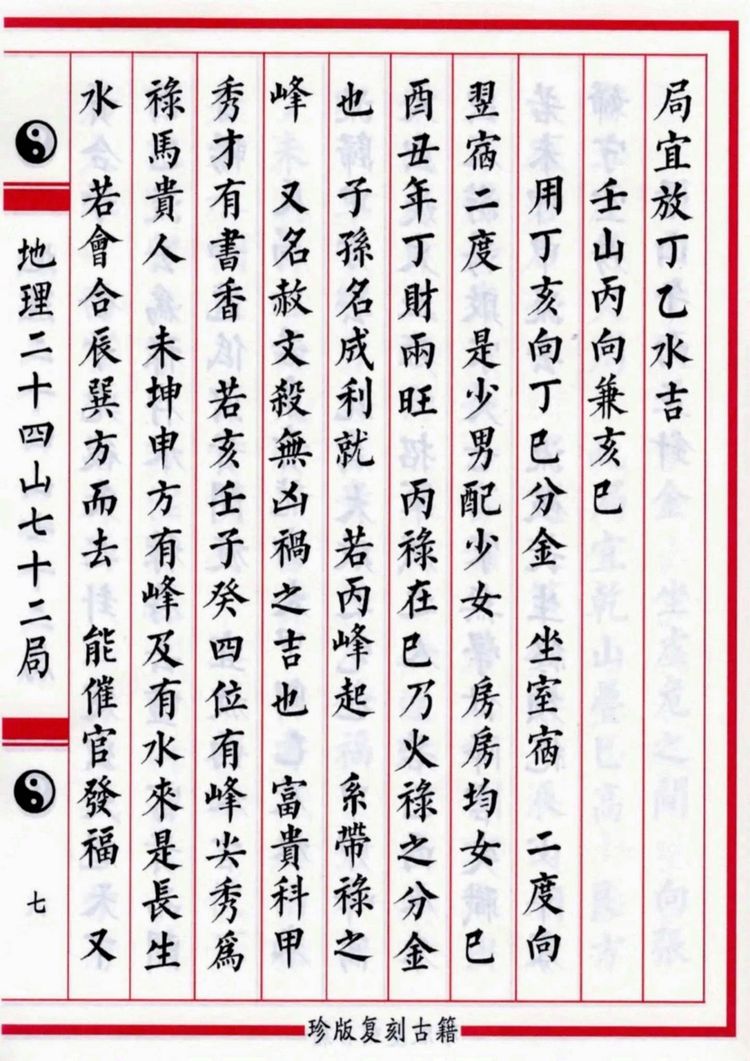 局宜放丁乙水吉
壬山丙向兼亥巳
用丁亥向丁巳分金 坐室宿 二度向
翌宿二度 是少男配少女 房房均女 巳
酉丑年丁財兩旺 丙祿在巳乃火祿之分金
也 子孫名成利就 若丙峰起 系帶祿之
峰 又名赦文殺無凶禍之吉也 富貴科甲
秀才有書香 若亥壬子癸四位有峰尖秀爲
祿馬貴人 未坤申方有峰及有水來是長生
水 若會合辰巽方而去 能催官發福 又
地理二十四山七十二局
七
珍版复刻古籍